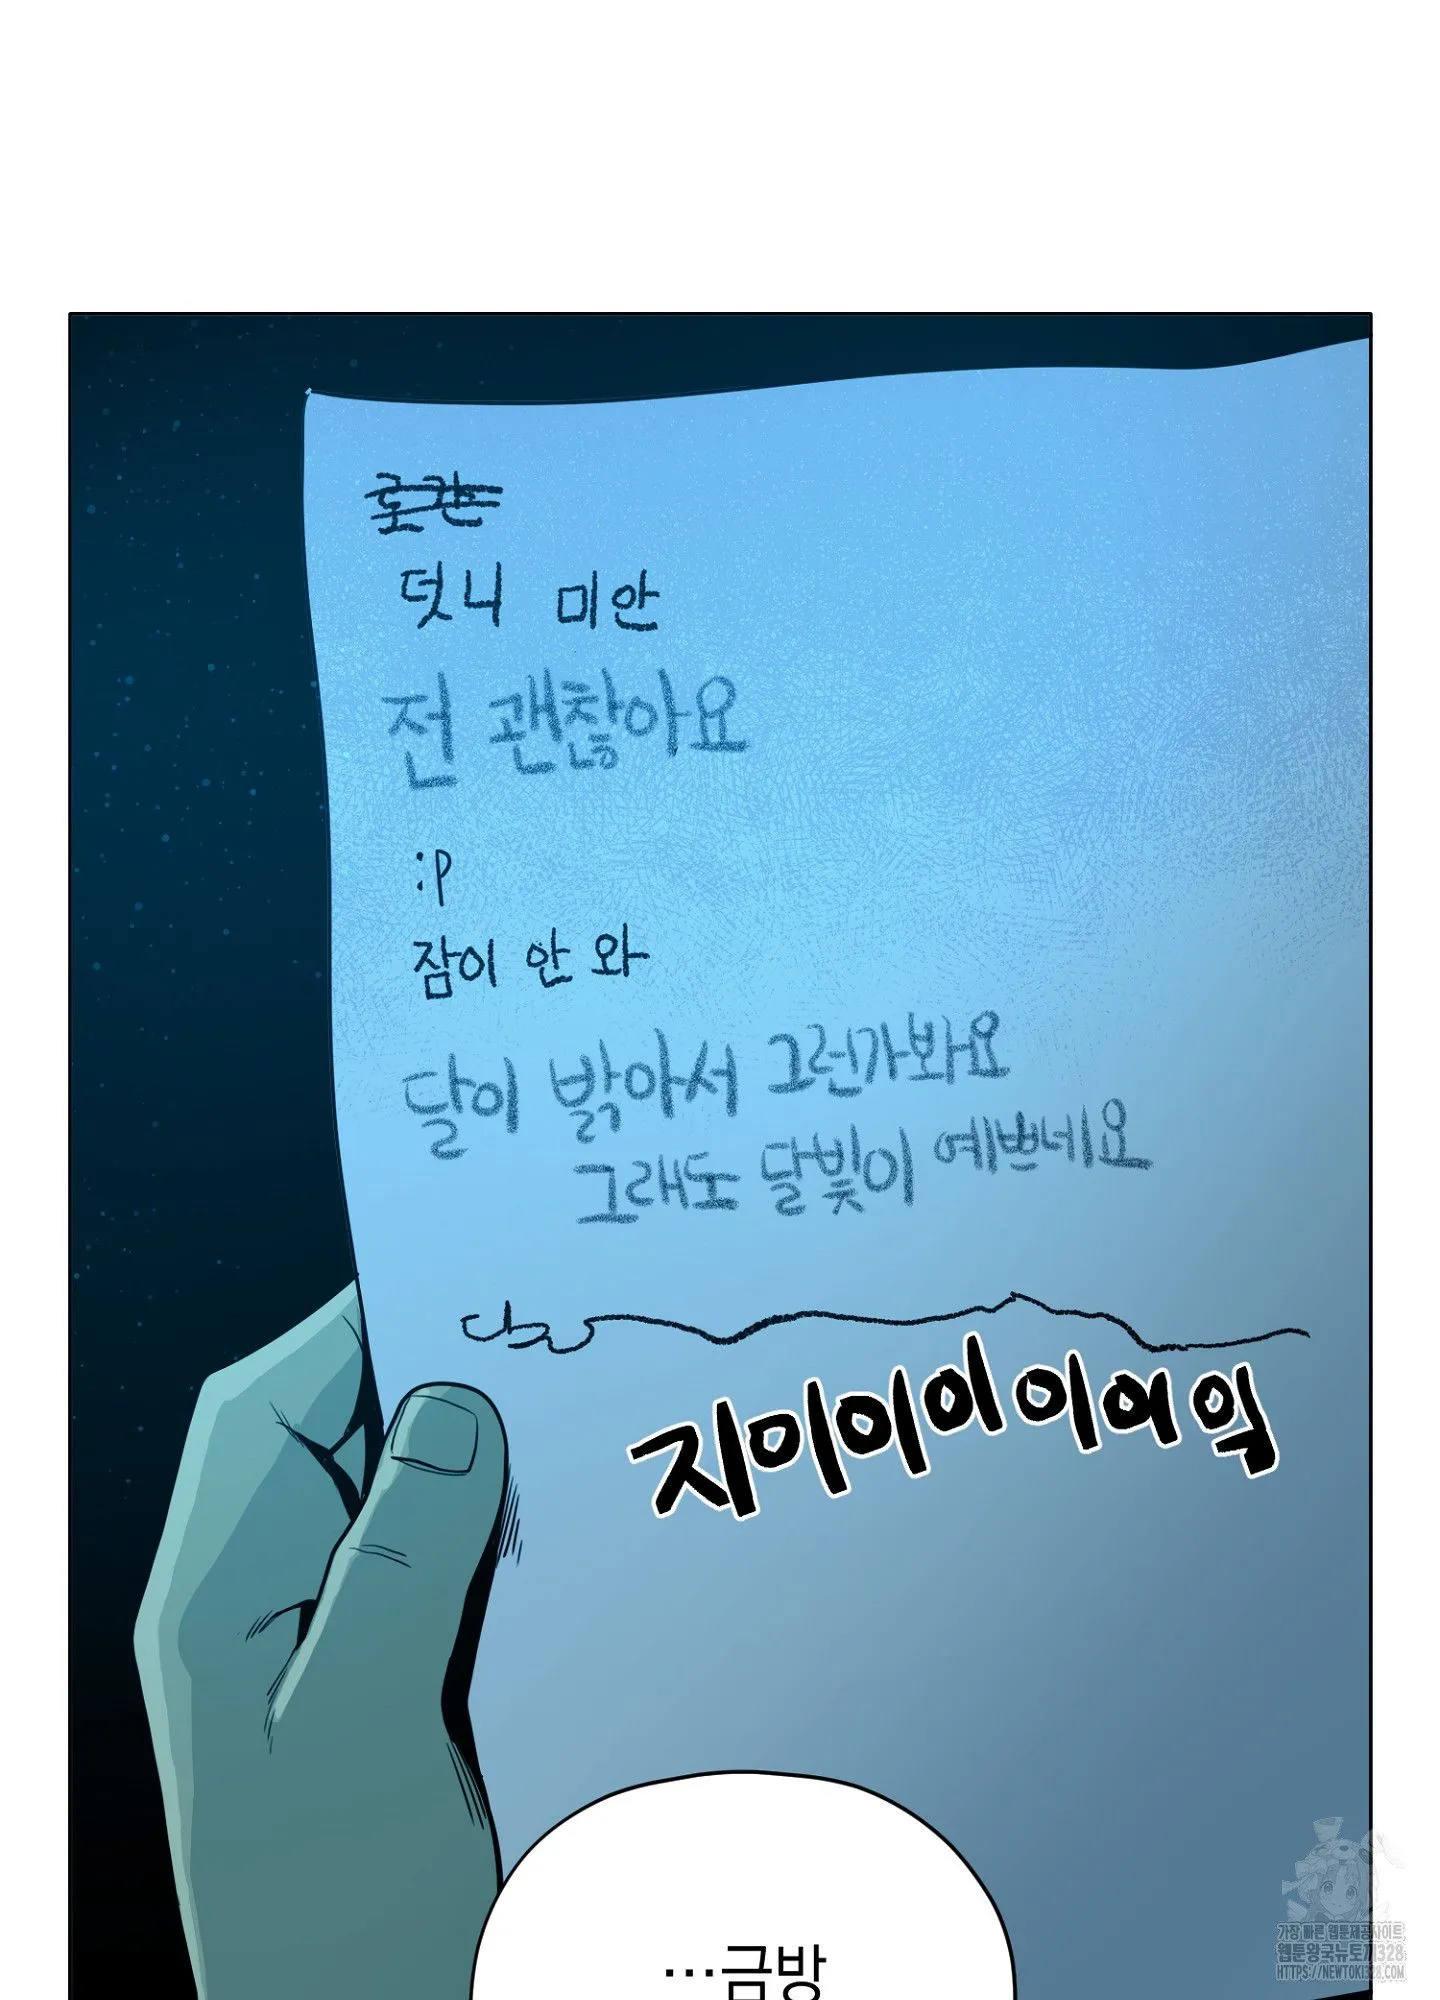 로칸
덧니 미안
전 괜찮아요
:p
잠이 안 와
달이 밝아서 그런가봐요
그래도 달빛이 예쁘네요
지이이이이이익
…금방
가장 빠른 웹툰제공사이트
웹툰왕국뉴토끼328
HTTPS://NEWTOKI328.COM